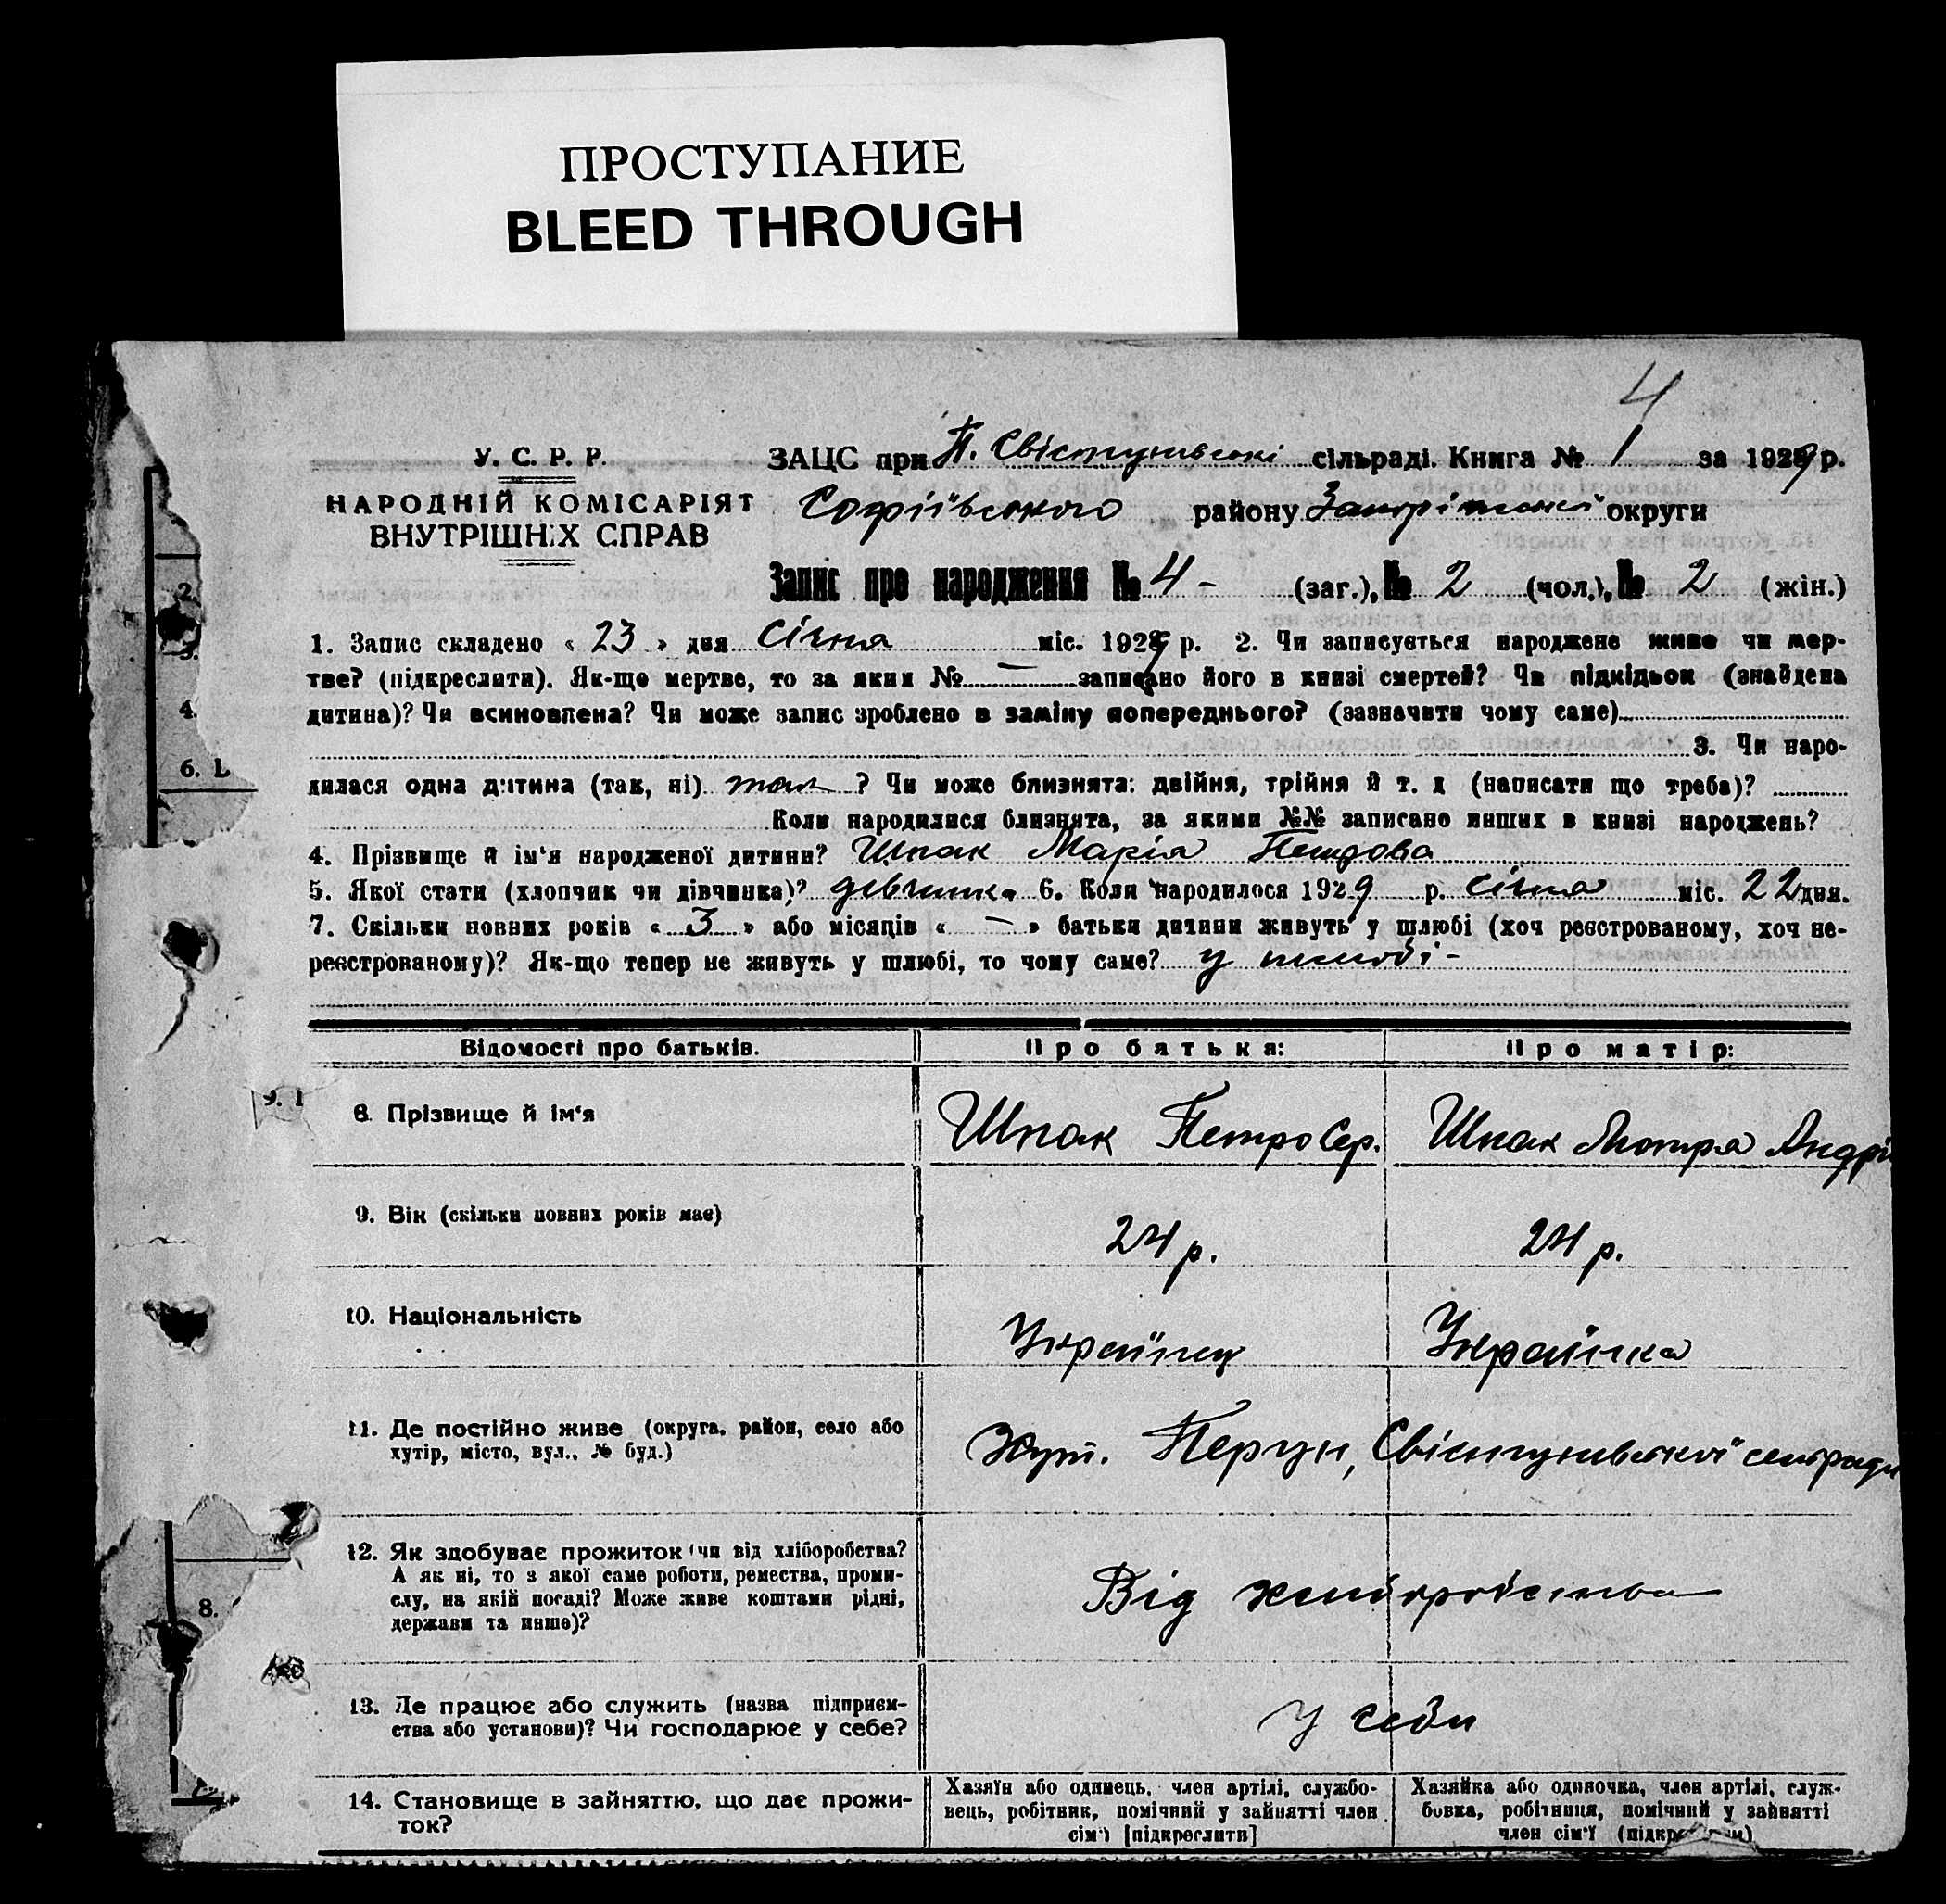 ПРОСТУПАНИЕ
BLEED THROUGH
4
У. С. Р. Р.
НАРОДНІЙ КОМІСАРІЯТ
ВНУТРІШНІХ СПРАВ
ЗАЦС при П. Свістунівські сільраді. Книга № 1 за 1929 р.
Софіївського району Запоріжської округи
Запис про народження № 4 - (заг.), № 2 (чол.), № 2 (жін.)
1. Запис складено « 23 » дня січня міс. 1929 р. 2. Чи записується народжене живе чи мер-
тве? (підкреслити). Як-що мертве, то за яким № — записано його в книзі смертей? Чи підкідьок (знайдена
дитина)? Чи всиновлена? Чи може запис зроблено в заміну попереднього? (зазначити чому саме)
3. Чи наро-
дилася одна дитина (так, ні) так ? Чи може близнята: двійня, трійня й т. д (написати що треба)?
Коли народилися близнята, за якими №№ записано инших в книзі народжень?
4. Прізвище й ім'я народженої дитини? Шпак Марія Петрова
5. Якої стати (хлопчик чи дівчинка)? дівчинка 6. Коли народилося 1929 р. січня міс. 22 дня.
7. Скільки повних років « 3 » або місяців « — » батьки дитини живуть у шлюбі (хоч реєстрованому, хоч не-
реєстрованому)? Як-що тепер не живуть у шлюбі, то чому саме? у шлюбі -
Відомості про батьків. Про батька: Про матір:
8. Прізвище й ім'я Шпак Петро Сер. Шпак Мотря Андрі
9. Вік (скільки повних років має) 24 р. 24 р.
10. Національність Українец Українка
11. Де постійно живе (округа, район, село або
хутір, місто, вул., № буд.) Хут. Перун, Свістунивської сельради
12. Як здобуває прожиток (чи від хліборобства?
А як ні, то з якої саме роботи, ремества, проми-
слу, на якій посаді? Може живе коштами рідні,
держави та инше)? Від хліборобства
13. Де працює або служить (назва підприєм-
ства або установи)? Чи господарює у себе? У себи
14. Становище в зайняттю, що дає прожи-
ток?
Хазяїн або одинець, член артілі, службо-
вець, робітник, помічний у зайнятті член
сім'ї [підкреслити]
Хазяйка або одиночка, член артілі, служ-
бовка, робітниця, помічний у зайнятті
член сім'ї
2.
3.
4.
6. В
9. І
8.